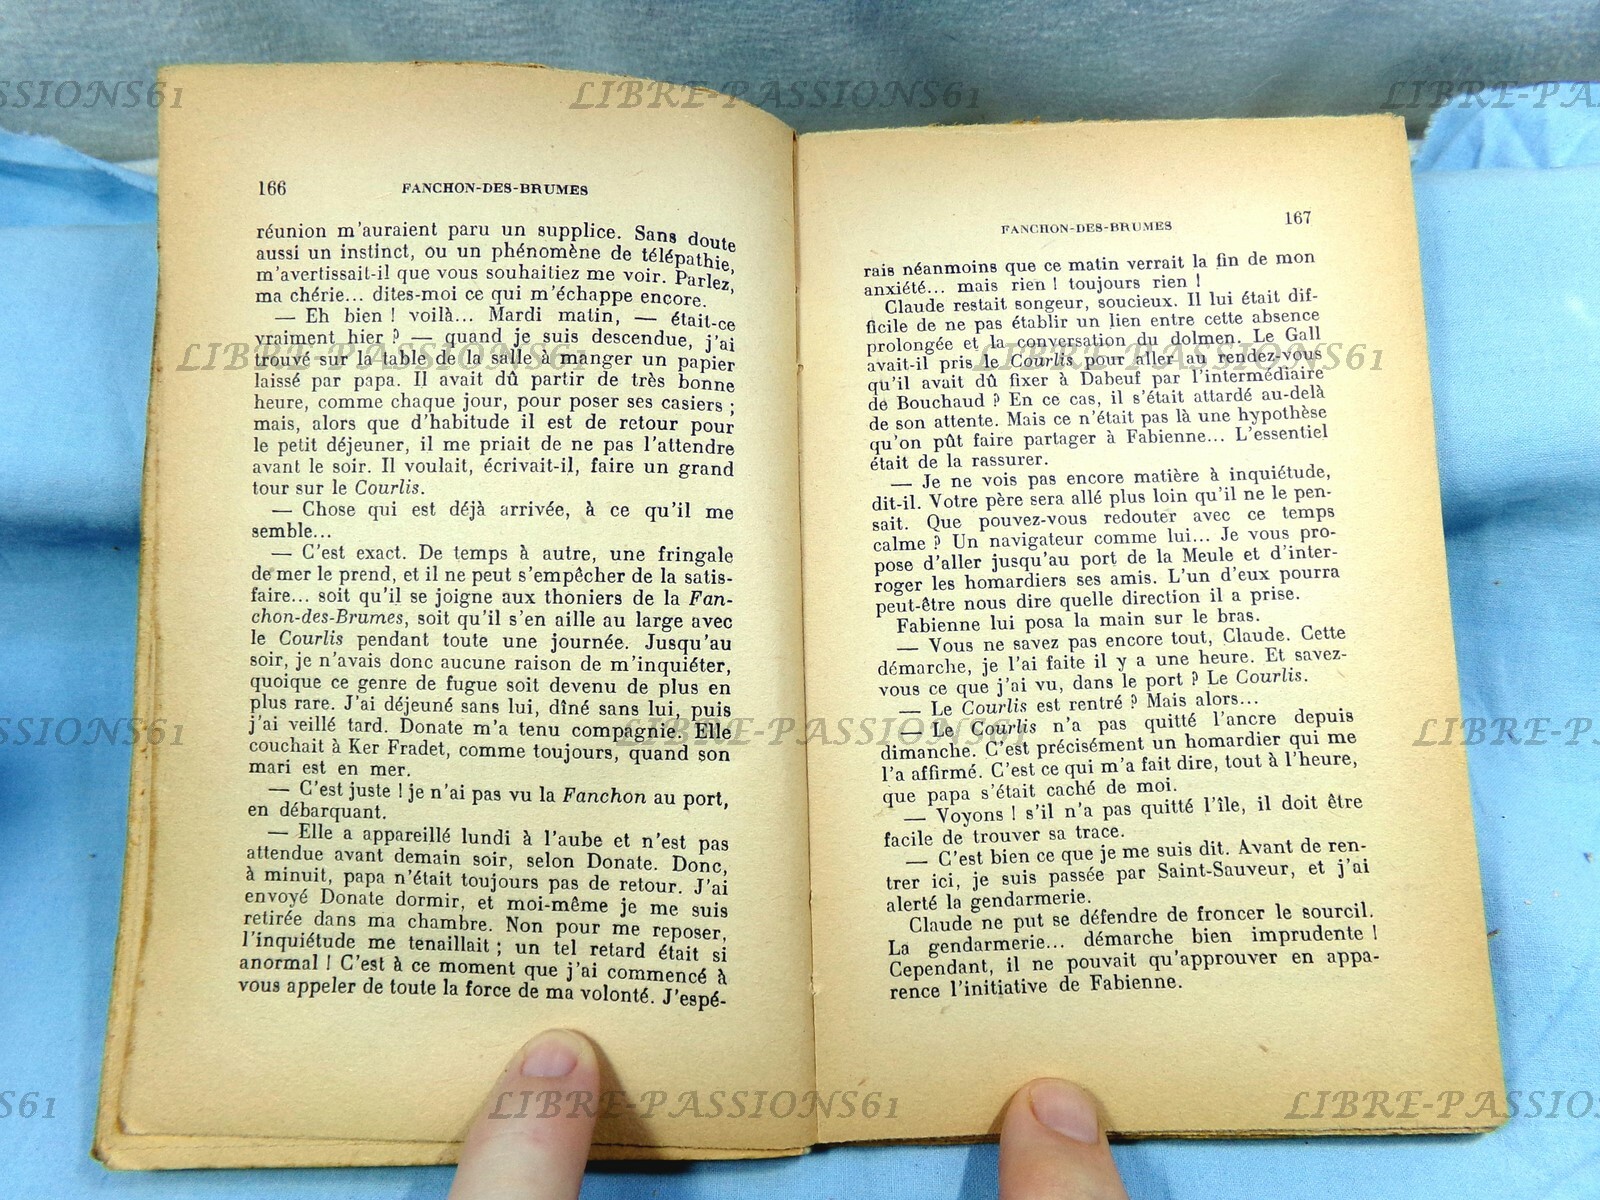 166 FANCHON-DES-BRUMES
réunion m'auraient paru un supplice. Sans doute
aussi un instinct, ou un phénomène de télépathie,
m'avertissait-il que vous souhaitiez me voir. Parlez,
ma chérie... dites-moi ce qui m'échappe encore.
— Eh bien ! voilà... Mardi matin, — était-ce
vraiment hier ? — quand je suis descendue, j'ai
trouvé sur la table de la salle à manger un papier
laissé par papa. Il avait dû partir de très bonne
heure, comme chaque jour, pour poser ses casiers ;
mais, alors que d'habitude il est de retour pour
le petit déjeuner, il me priait de ne pas l'attendre
avant le soir. Il voulait, écrivait-il, faire un grand
tour sur le Courlis.
— Chose qui est déjà arrivée, à ce qu'il me
semble...
— C'est exact. De temps à autre, une fringale
de mer le prend, et il ne peut s'empêcher de la satis-
faire... soit qu'il se joigne aux thoniers de la Fan-
chon-des-Brumes, soit qu'il s'en aille au large avec
le Courlis pendant toute une journée. Jusqu'au
soir, je n'avais donc aucune raison de m'inquiéter,
quoique ce genre de fugue soit devenu de plus en
plus rare. J'ai déjeuné sans lui, dîné sans lui, puis
j'ai veillé tard. Donate m'a tenu compagnie. Elle
couchait à Ker Fradet, comme toujours, quand son
mari est en mer.
— C'est juste ! je n'ai pas vu la Fanchon au port,
en débarquant.
— Elle a appareillé lundi à l'aube et n'est pas
attendue avant demain soir, selon Donate. Donc,
à minuit, papa n'était toujours pas de retour. J'ai
envoyé Donate dormir, et moi-même je me suis
retirée dans ma chambre. Non pour me reposer,
l'inquiétude me tenaillait ; un tel retard était si
anormal ! C'est à ce moment que j'ai commencé à
vous appeler de toute la force de ma volonté. J'espé-
FANCHON-DES-BRUMES 167
rais néanmoins que ce matin verrait la fin de mon
anxiété... mais rien ! toujours rien !
Claude restait songeur, soucieux. Il lui était dif-
ficile de ne pas établir un lien entre cette absence
prolongée et la conversation du dolmen. Le Gall
avait-il pris le Courlis pour aller au rendez-vous
qu'il avait dû fixer à Dabeuf par l'intermédiaire
de Bouchaud ? En ce cas, il s'était attardé au-delà
de son attente. Mais ce n'était pas là une hypothèse
qu'on pût faire partager à Fabienne... L'essentiel
était de la rassurer.
— Je ne vois pas encore matière à inquiétude,
dit-il. Votre père sera allé plus loin qu'il ne le pen-
sait. Que pouvez-vous redouter avec ce temps
calme ? Un navigateur comme lui... Je vous pro-
pose d'aller jusqu'au port de la Meule et d'inter-
roger les homardiers ses amis. L'un d'eux pourra
peut-être nous dire quelle direction il a prise.
Fabienne lui posa la main sur le bras.
— Vous ne savez pas encore tout, Claude. Cette
démarche, je l'ai faite il y a une heure. Et savez-
vous ce que j'ai vu, dans le port ? Le Courlis.
— Le Courlis est rentré ? Mais alors...
— Le Courlis n'a pas quitté l'ancre depuis
dimanche. C'est précisément un homardier qui me
l'a affirmé. C'est ce qui m'a fait dire, tout à l'heure,
que papa s'était caché de moi.
— Voyons ! s'il n'a pas quitté l'île, il doit être
facile de trouver sa trace.
— C'est bien ce que je me suis dit. Avant de ren-
trer ici, je suis passée par Saint-Sauveur, et j'ai
alerté la gendarmerie.
Claude ne put se défendre de froncer le sourcil.
La gendarmerie... démarche bien imprudente !
Cependant, il ne pouvait qu'approuver en appa-
rence l'initiative de Fabienne.
SSIONS61
LIBRE-PASSIONS61
LIBRE-PAS
LIBRE-PASSIONS61
LIBRE-PASSIONS61
SSIONS61
LIBRE-PASSIONS61
LIBRE-P
S61
LIBRE-PASSIONS61
LIBRE-PASSIONS